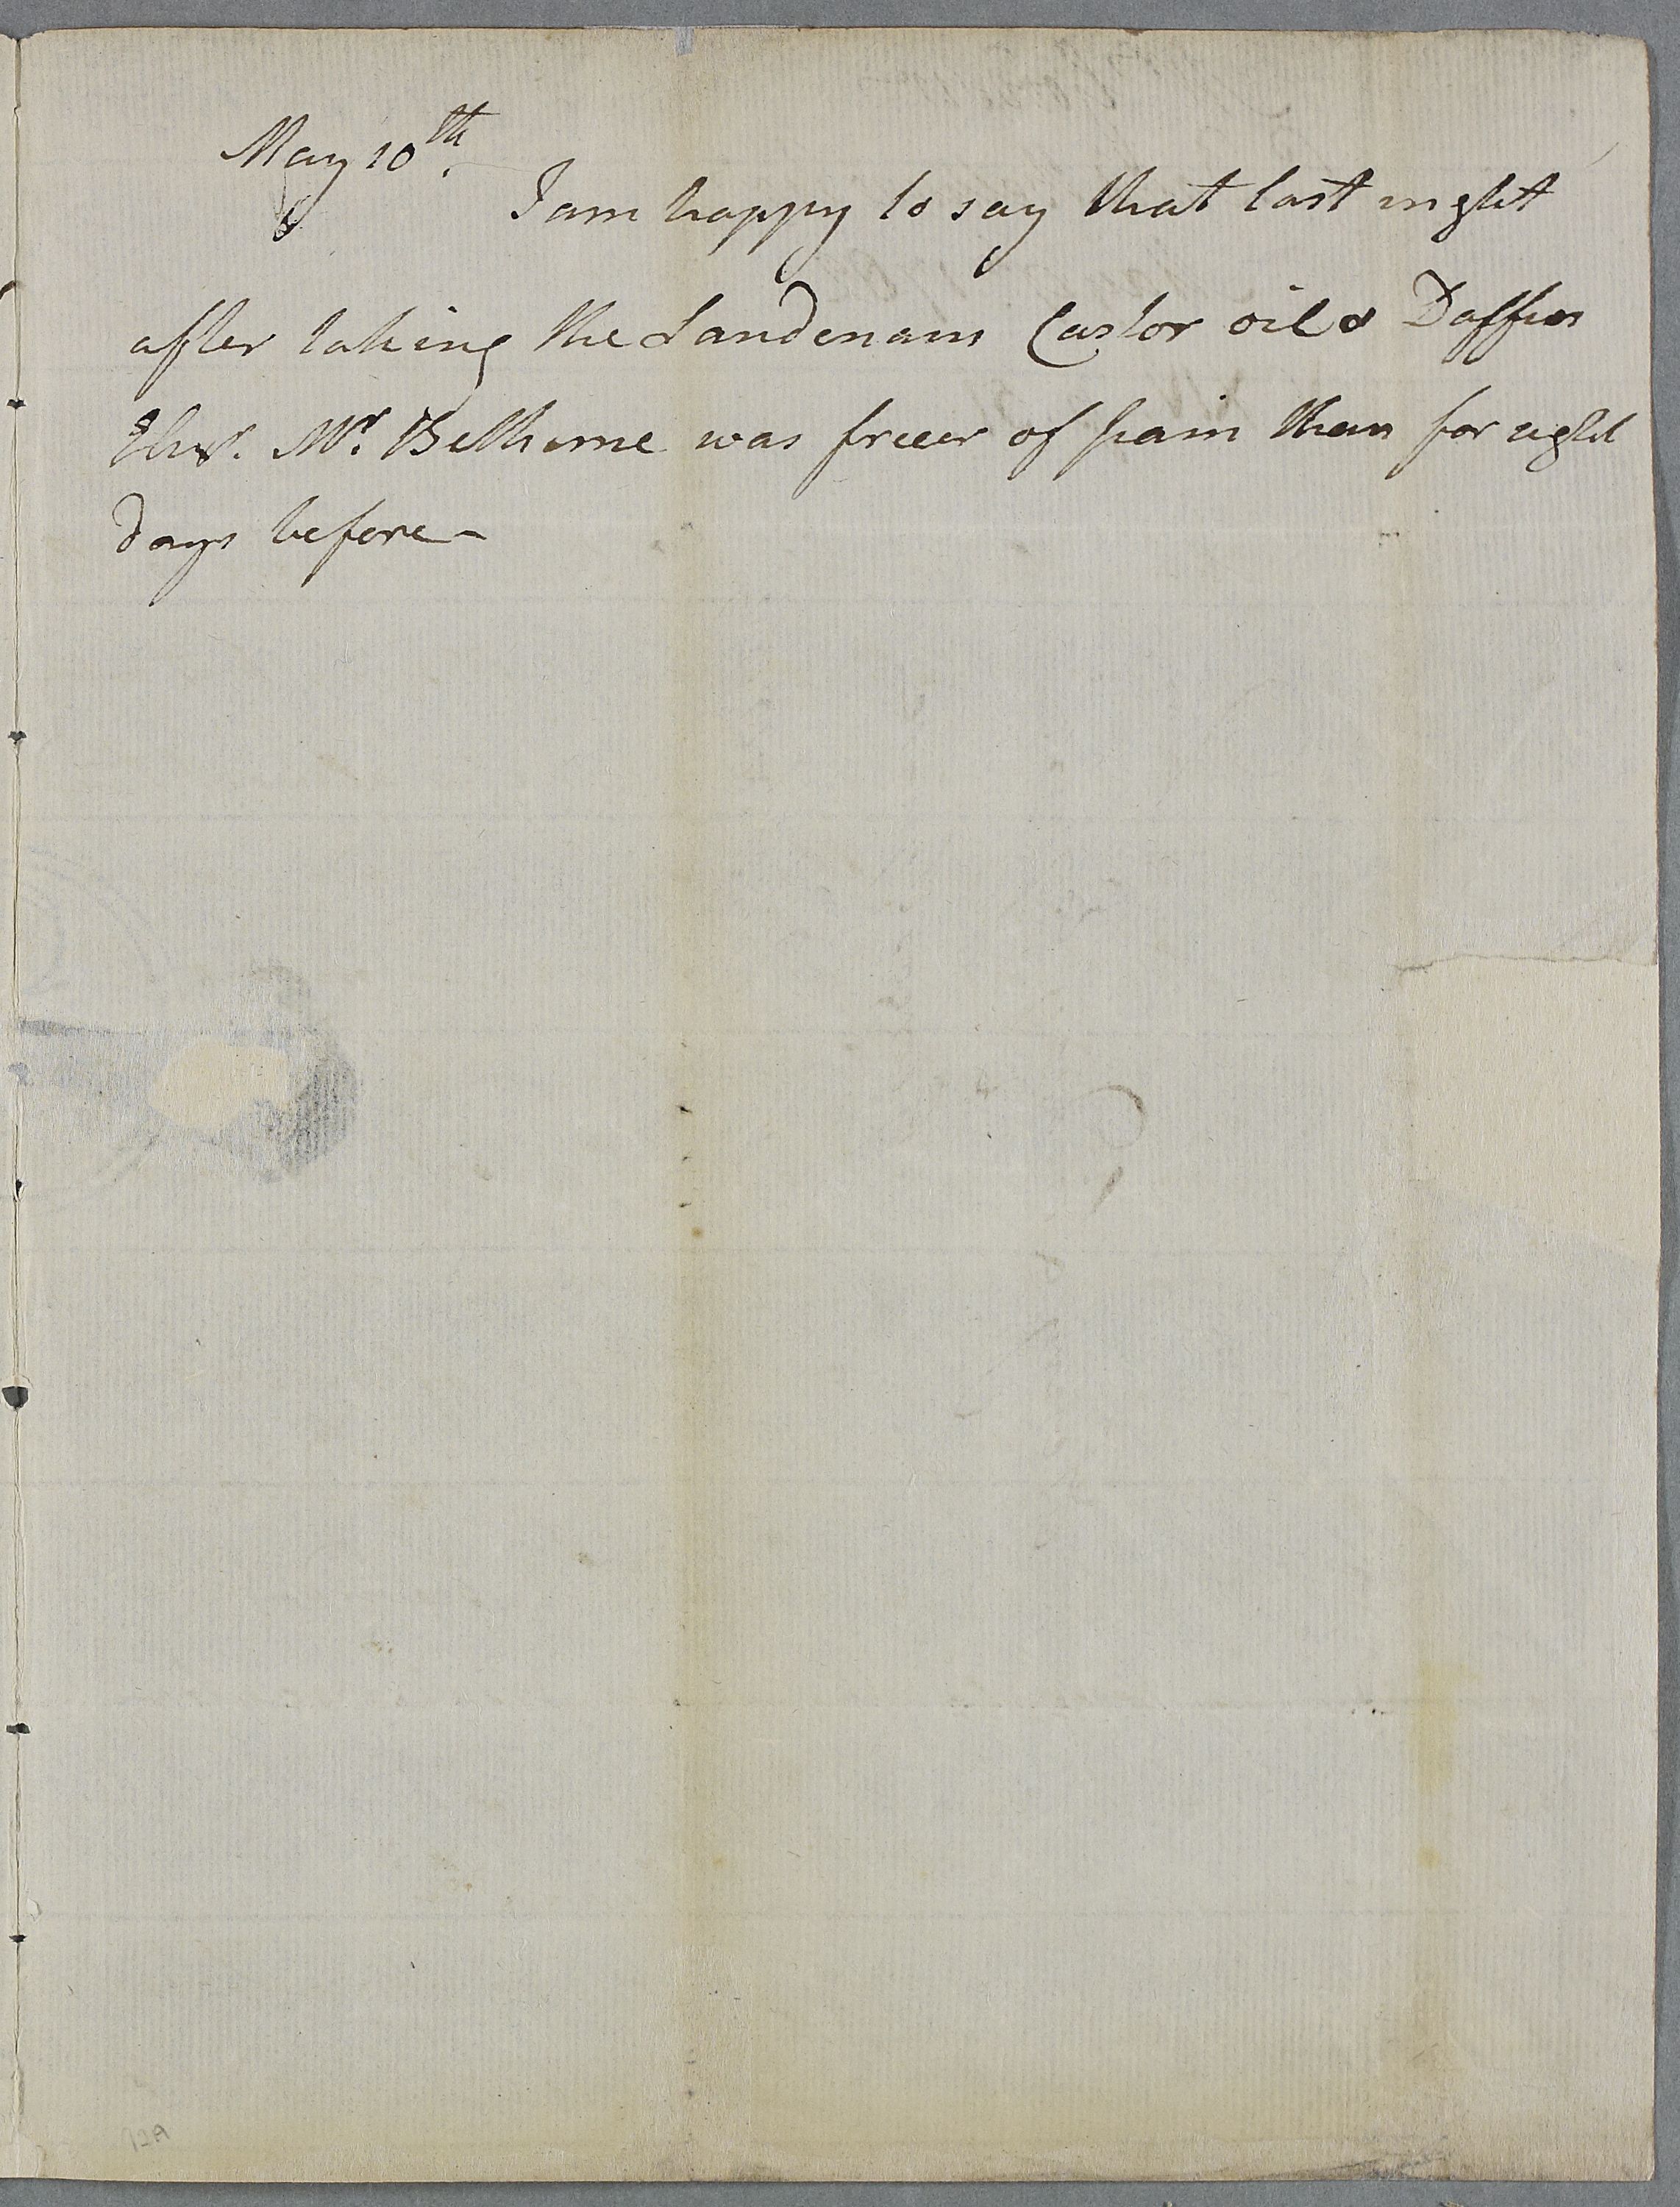 May 10th.
I am happy to say that last night
after taking the Laudenam Castor oil & Daffies
Elixr. Mr. Bethune was freeer of pain than for eight
days before -
72A